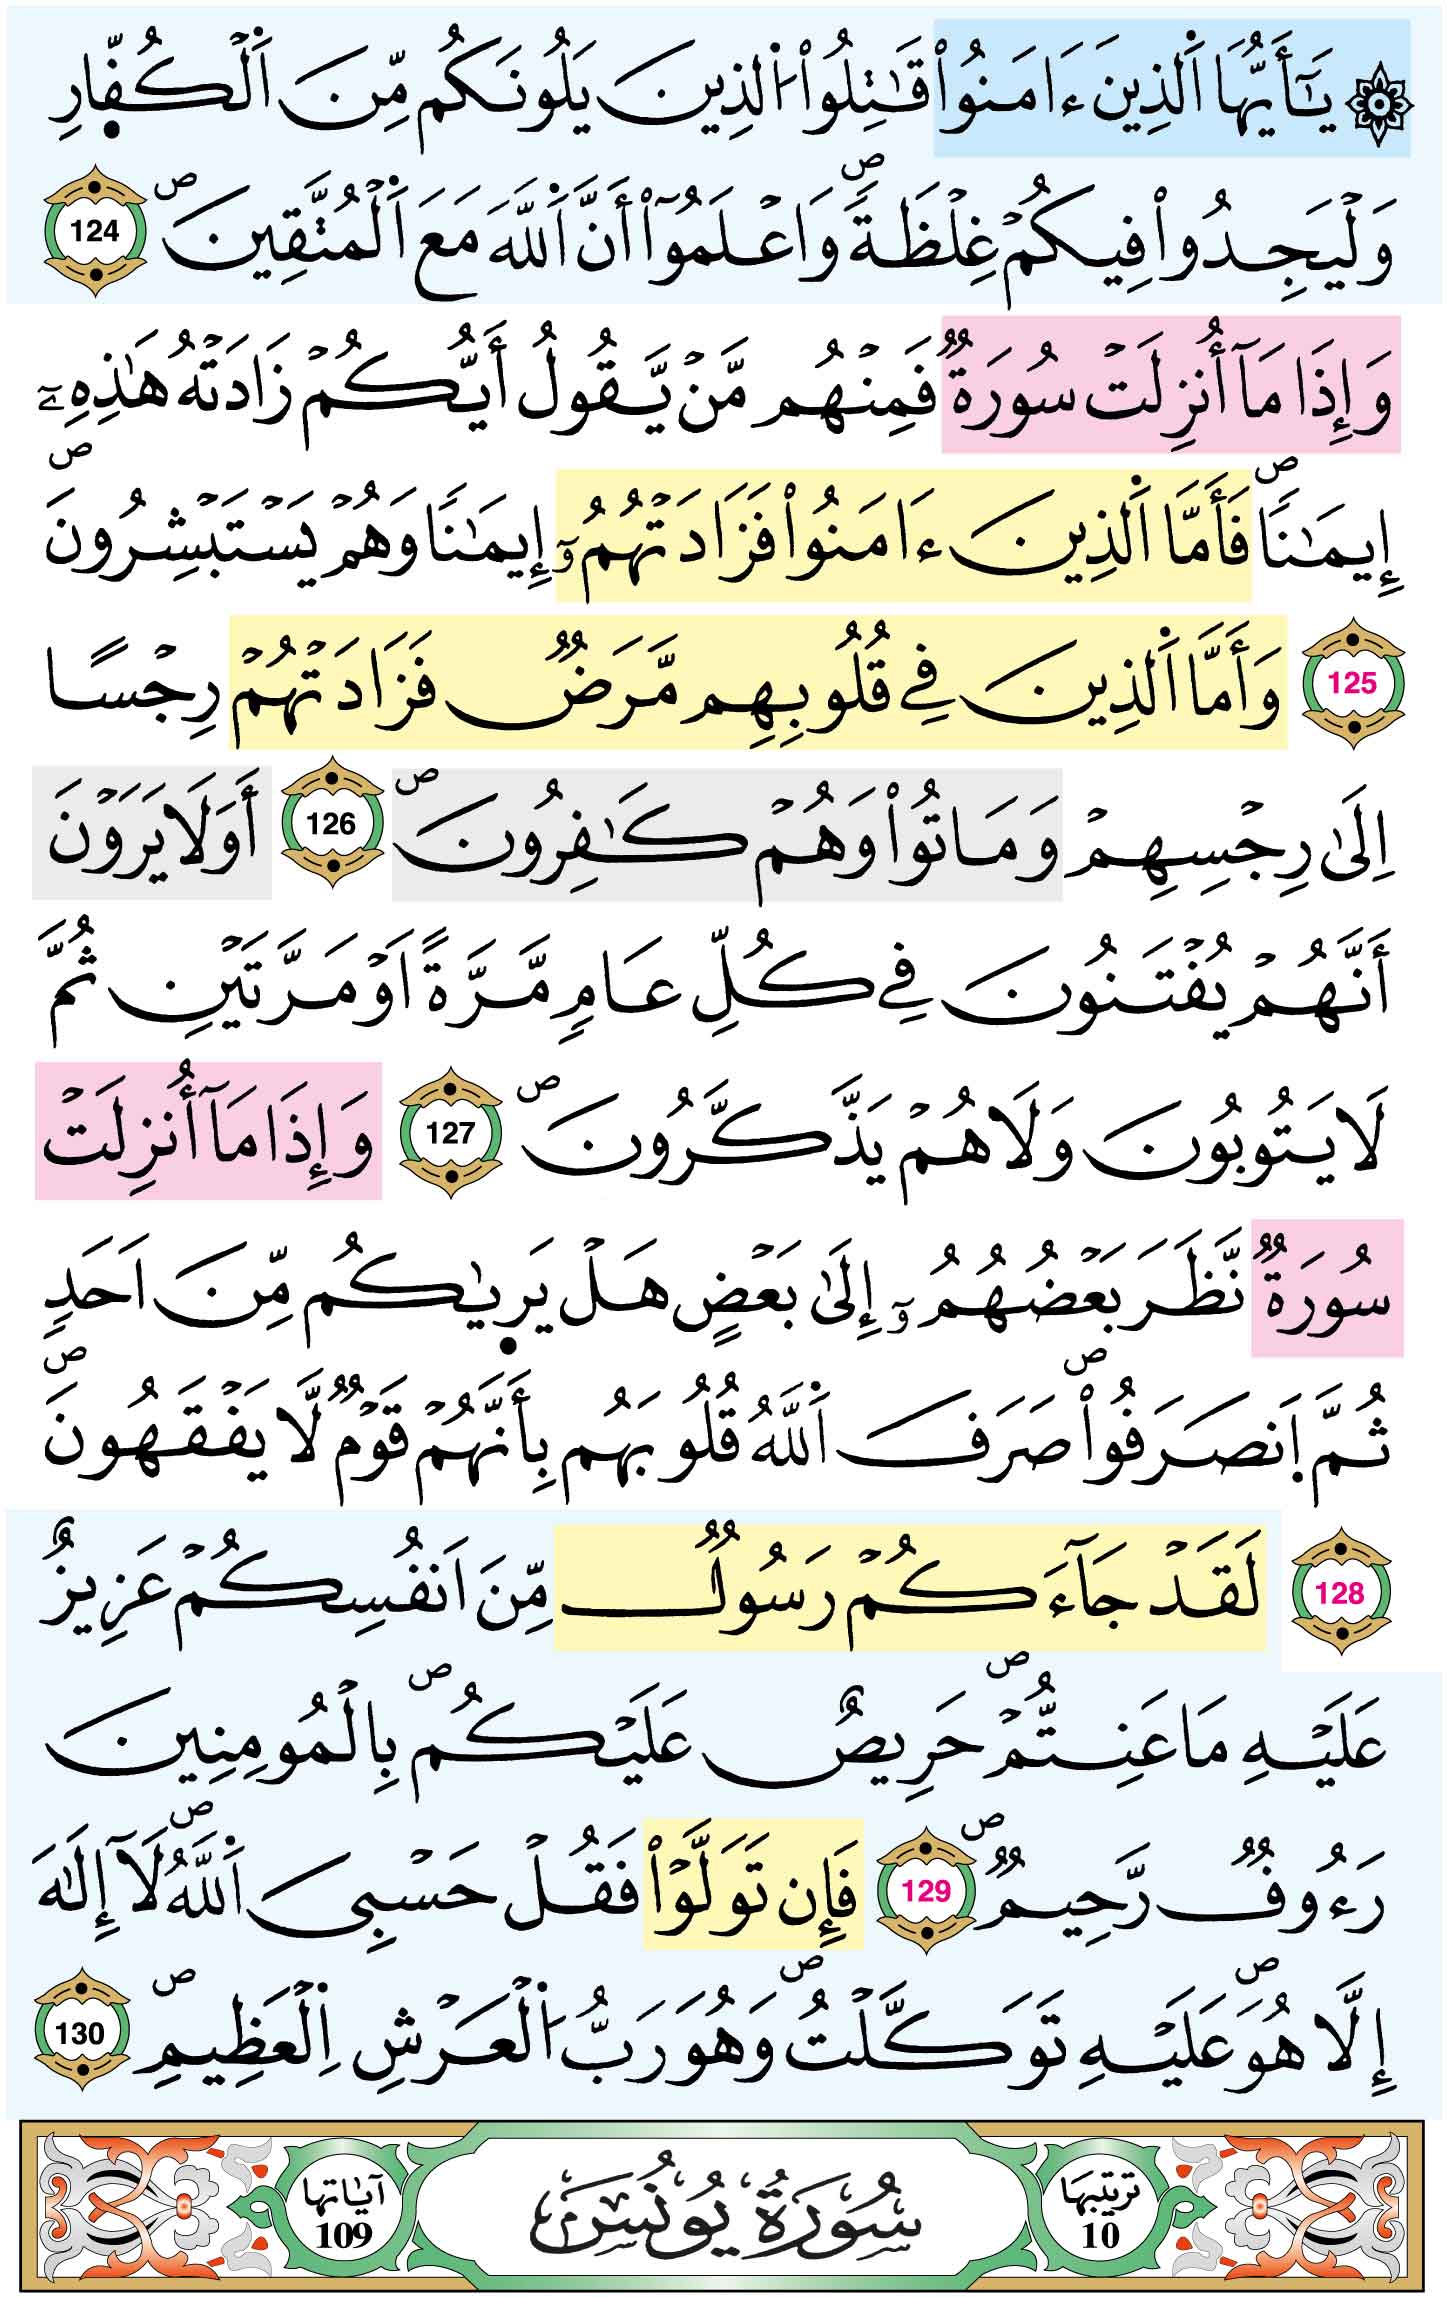 ۞ يَٰٓأَيُّهَا اَ۬لذِينَ ءَامَنُواْ قَٰتِلُواْ اُ۬لذِينَ يَلُونَكُم مِّنَ اَ۬لْكُفّ۪ارِ
وَلْيَجِدُواْ فِيكُمْ غِلْظَةٗۖ وَاعْلَمُوٓاْ أَنَّ اَ۬للَّهَ مَعَ اَ۬لْمُتَّقِينَۖ 124
وَإِذَا مَآ أُنزِلَتْ سُورَةٞ فَمِنْهُم مَّنْ يَّقُولُ أَيُّكُمْ زَادَتْهُ هَٰذِهِۦٓ
إِيمَٰناٗۖ فَأَمَّا اَ۬لذِينَ ءَامَنُواْ فَزَادَتْهُمُۥٓ إِيمَٰناٗ وَهُمْ يَسْتَبْشِرُونَۖ
125 وَأَمَّا اَ۬لذِينَ فِے قُلُوبِهِم مَّرَضٞ فَزَادَتْهُمْ رِجْساً
اِلَىٰ رِجْسِهِمْ وَمَاتُواْ وَهُمْ كَٰفِرُونَۖ 126 أَوَلَا يَرَوْنَ
أَنَّهُمْ يُفْتَنُونَ فِے كُلِّ عَامٖ مَّرَّةً اَوْ مَرَّتَيْنِ ثُمَّ
لَا يَتُوبُونَ وَلَا هُمْ يَذَّكَّرُونَۖ 127 وَإِذَا مَآ أُنزِلَتْ
سُورَةٞ نَّظَرَ بَعْضُهُمُۥٓ إِلَىٰ بَعْضٍ هَلْ يَر۪يٰكُم مِّنَ اَحَدٖ
ثُمَّ اَ۪نصَرَفُواْۖ صَرَفَ اَ۬للَّهُ قُلُوبَهُم بِأَنَّهُمْ قَوْمٞ لَّا يَفْقَهُونَۖ
128 لَقَدْ جَآءَكُمْ رَسُولٞ مِّنَ اَنفُسِكُمْ عَزِيزٌ
عَلَيْهِ مَا عَنِتُّمْۖ حَرِيصٌ عَلَيْكُمۖ بِالْمُومِنِينَ
رَءُوفٞ رَّحِيمٞۖ 129 فَإِن تَوَلَّوْاْ فَقُلْ حَسْبِيَ اَ۬للَّهُۖ لَآ إِلَٰهَ
إِلَّا هُوَۖ عَلَيْهِ تَوَكَّلْتُۖ وَهُوَ رَبُّ اُ۬لْعَرْشِ اِ۬لْعَظِيمِۖ 130
ترتيبها 10 سُورَةُ يُونُسَ آيَاتها 109